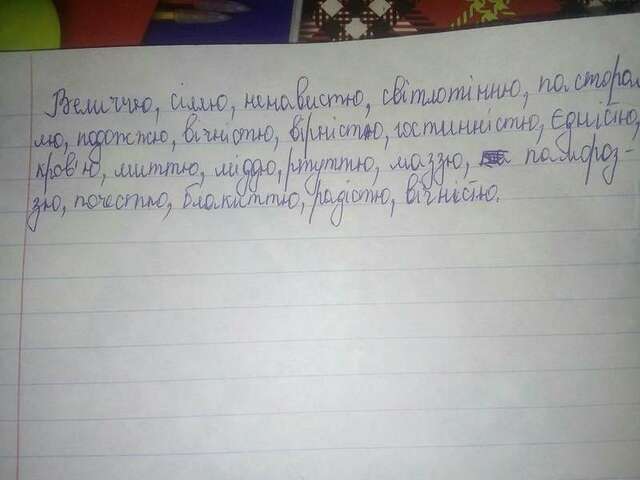 Величчю, сіллю, ненавистю, світлотінню, пасторал
лю, подорожжю, вічністю, вірністю, гостинністю, Єднісію,
кров'ю, миттю, міддю, ртуттю, маззю, памороз-
зю, почестю, блакиттю, радістю, вічнісю.